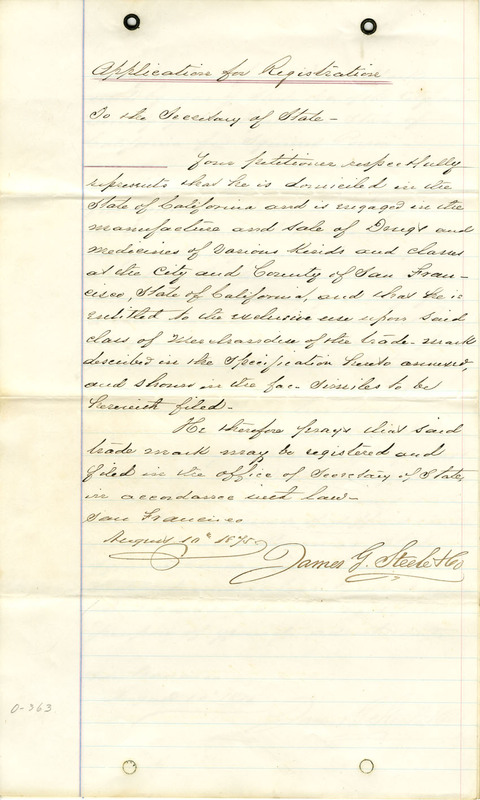 Application for Registration
To the Secretary of State -
Your petitioner respectfully
represents that he is domiciled in the
State of California and is engaged in the
manufacture and sale of Drugs and
medicines of various kinds and classes
at the City and County of San Fran-
cisco, State of California, and that he is
entitled to the exclusive use upon said
class of Merchandise of the trade-mark
described in the Specification hereto annexed,
and shown in the fac-similes to be
herewith filed-
He therefore prays that said
trade mark may be registered and
filed in the office of Secretary of State,
in accordance with law-
San Francisco
August 10th
James G. Steele & Co
0-363